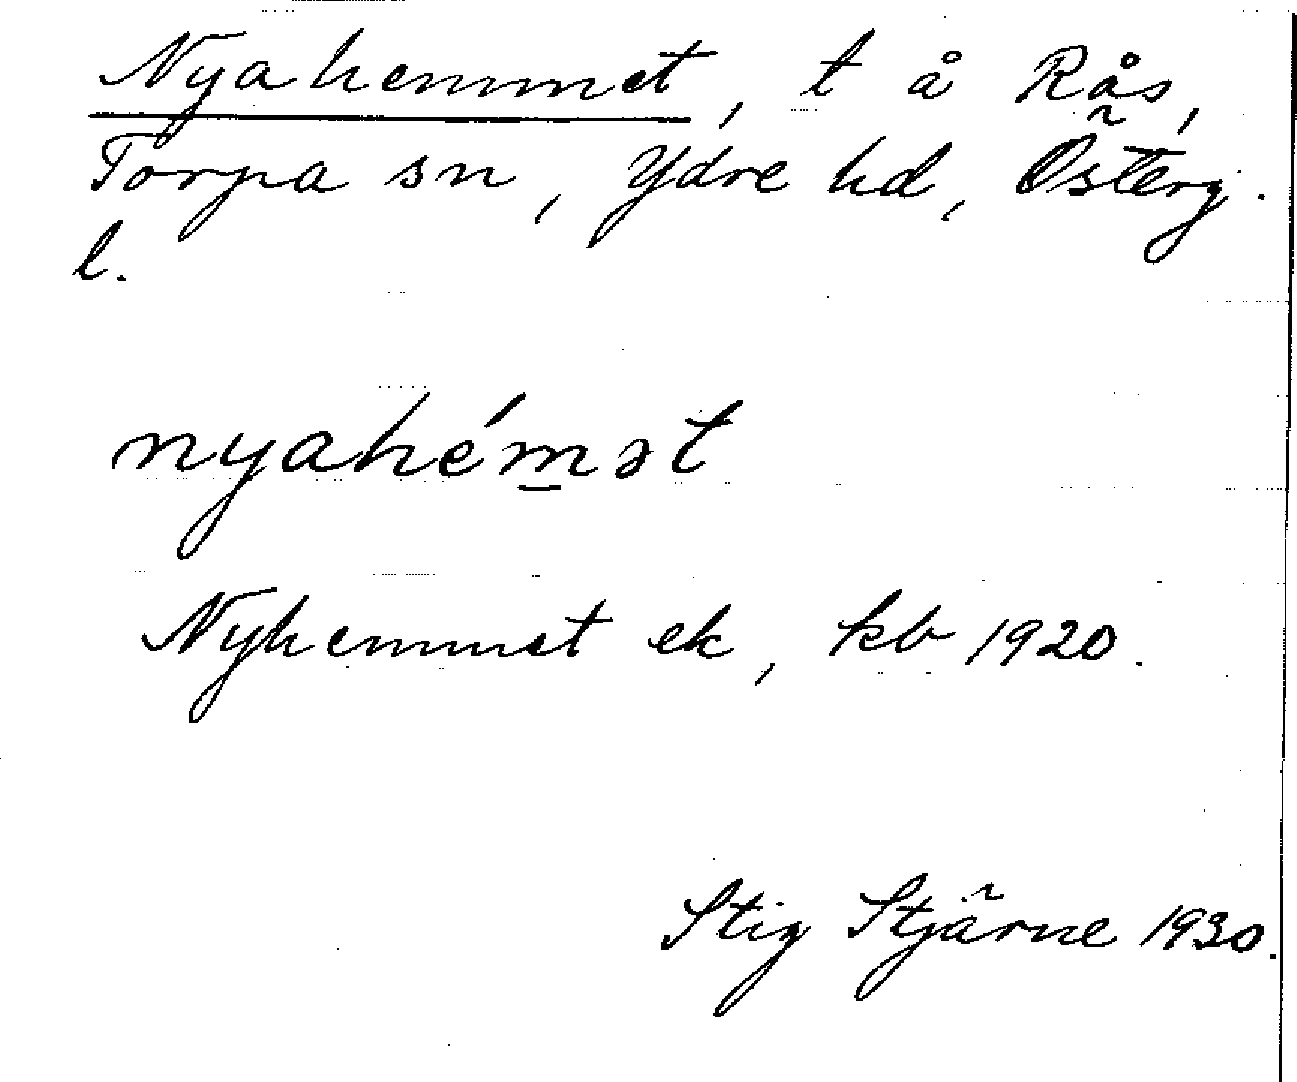 Nyahemmet, t å Rås,
Torpa sn, Ydre hd, Österg.
l.
nyahém̲ət
Nyhemmet ek, kb 1920.
Stig Stjärne 1930.